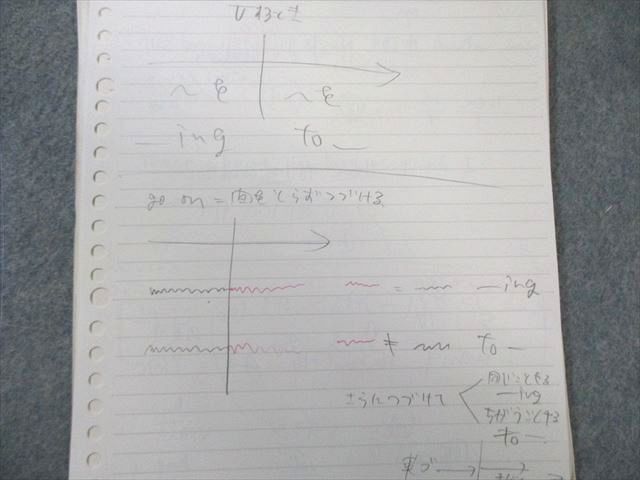 〜を 〜を
ing to
go on = 間をとらずつづける
= ing
≠ to
さらにつづけて
同じことをする
ing
ちがうことをする
to